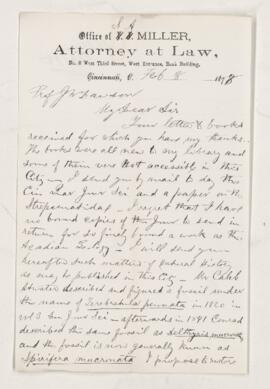 S. A.
Office of S. A. MILLER,
Attorney at Law,
No. 8 West Third Street, West Entrance, Bank Building,
Cincinnati, O. Feb 8 1878
Prof J W Dawson
My Dear Sir
Your letter & books
received for which you have my thanks.
The books were all new to my library and
some of them very not accessible in this
City — I send you by mail to day the
Cin Quar Jour Sci and a paper on the
I regret that I have
no bound copies of the Jour to send in
return for so finely bound a work as the
Acadian Geology — I will send you
hereafter such matters of Natural History
as may be published in this City — Mr Caleb
Atwater described and figured a fossil under
the name of Terebratula pennata in 1820 in
vol 2 Am Jour Sci — afterwards in 1841 Conrad
described the same fossil as Delthyris mucronata
and the fossil is now generally known as
Spirifera mucronata I propose to restore